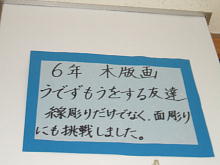 6年 木版画
うでずもうをする友達
線彫りだけでなく、面彫り
にも挑戦しました。